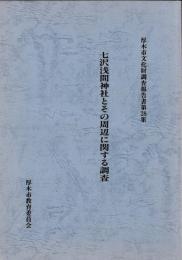 厚木市文化財調査報告書第38集
七沢浅間神社とその周辺に関する調査
厚木市教育委員会